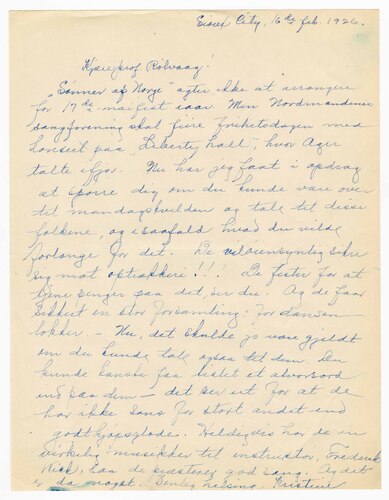 Sioux City, 16de feb 1926.
Kjære prof Rölvaag!
"Sønner af Norge" agter ikke at arrangere
for 17de maifest iaar. Men Nordmændenes
sangforening skal feire frihetsdagen med
konsert paa "Liberty hall", hvor Ager
talte ifjor. Nu har jeg faat i opdrag
at spørre dig om du kunde være over
til mandagskvelden og tale til disse
folkene, og isaafald hvad du vilde
forlange for det. De vil
sig mot optrækkeri!!! De fester for at
tjene penger paa det, ser du. Og de faar
sikkert en stor forsamling; for dansen
lokker – Nu, det skulde jo være gjildt
om du kunde tale ogsaa til dem. Du
kunde kanske faa listet et alvorsord
ind paa dem – det ser ut for at de
har ikke sans for stort andet end
godt hjæsglade. Heldigvis har de en
virkelig musikker til instruktør, Frederick
Wick, saa de præsterer god sang. Og det
er da noget. Venlig hilsing, Kristine